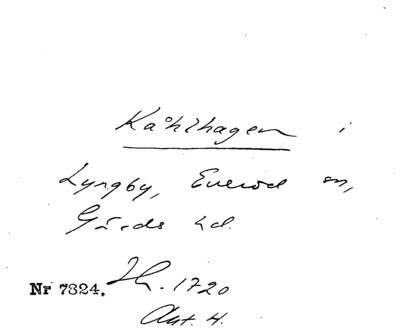 Kåhlhagen i
Lyngby, Everöd sn,
Gärds hd.
Nr 7824. Jh. 1720
Akt. 4.